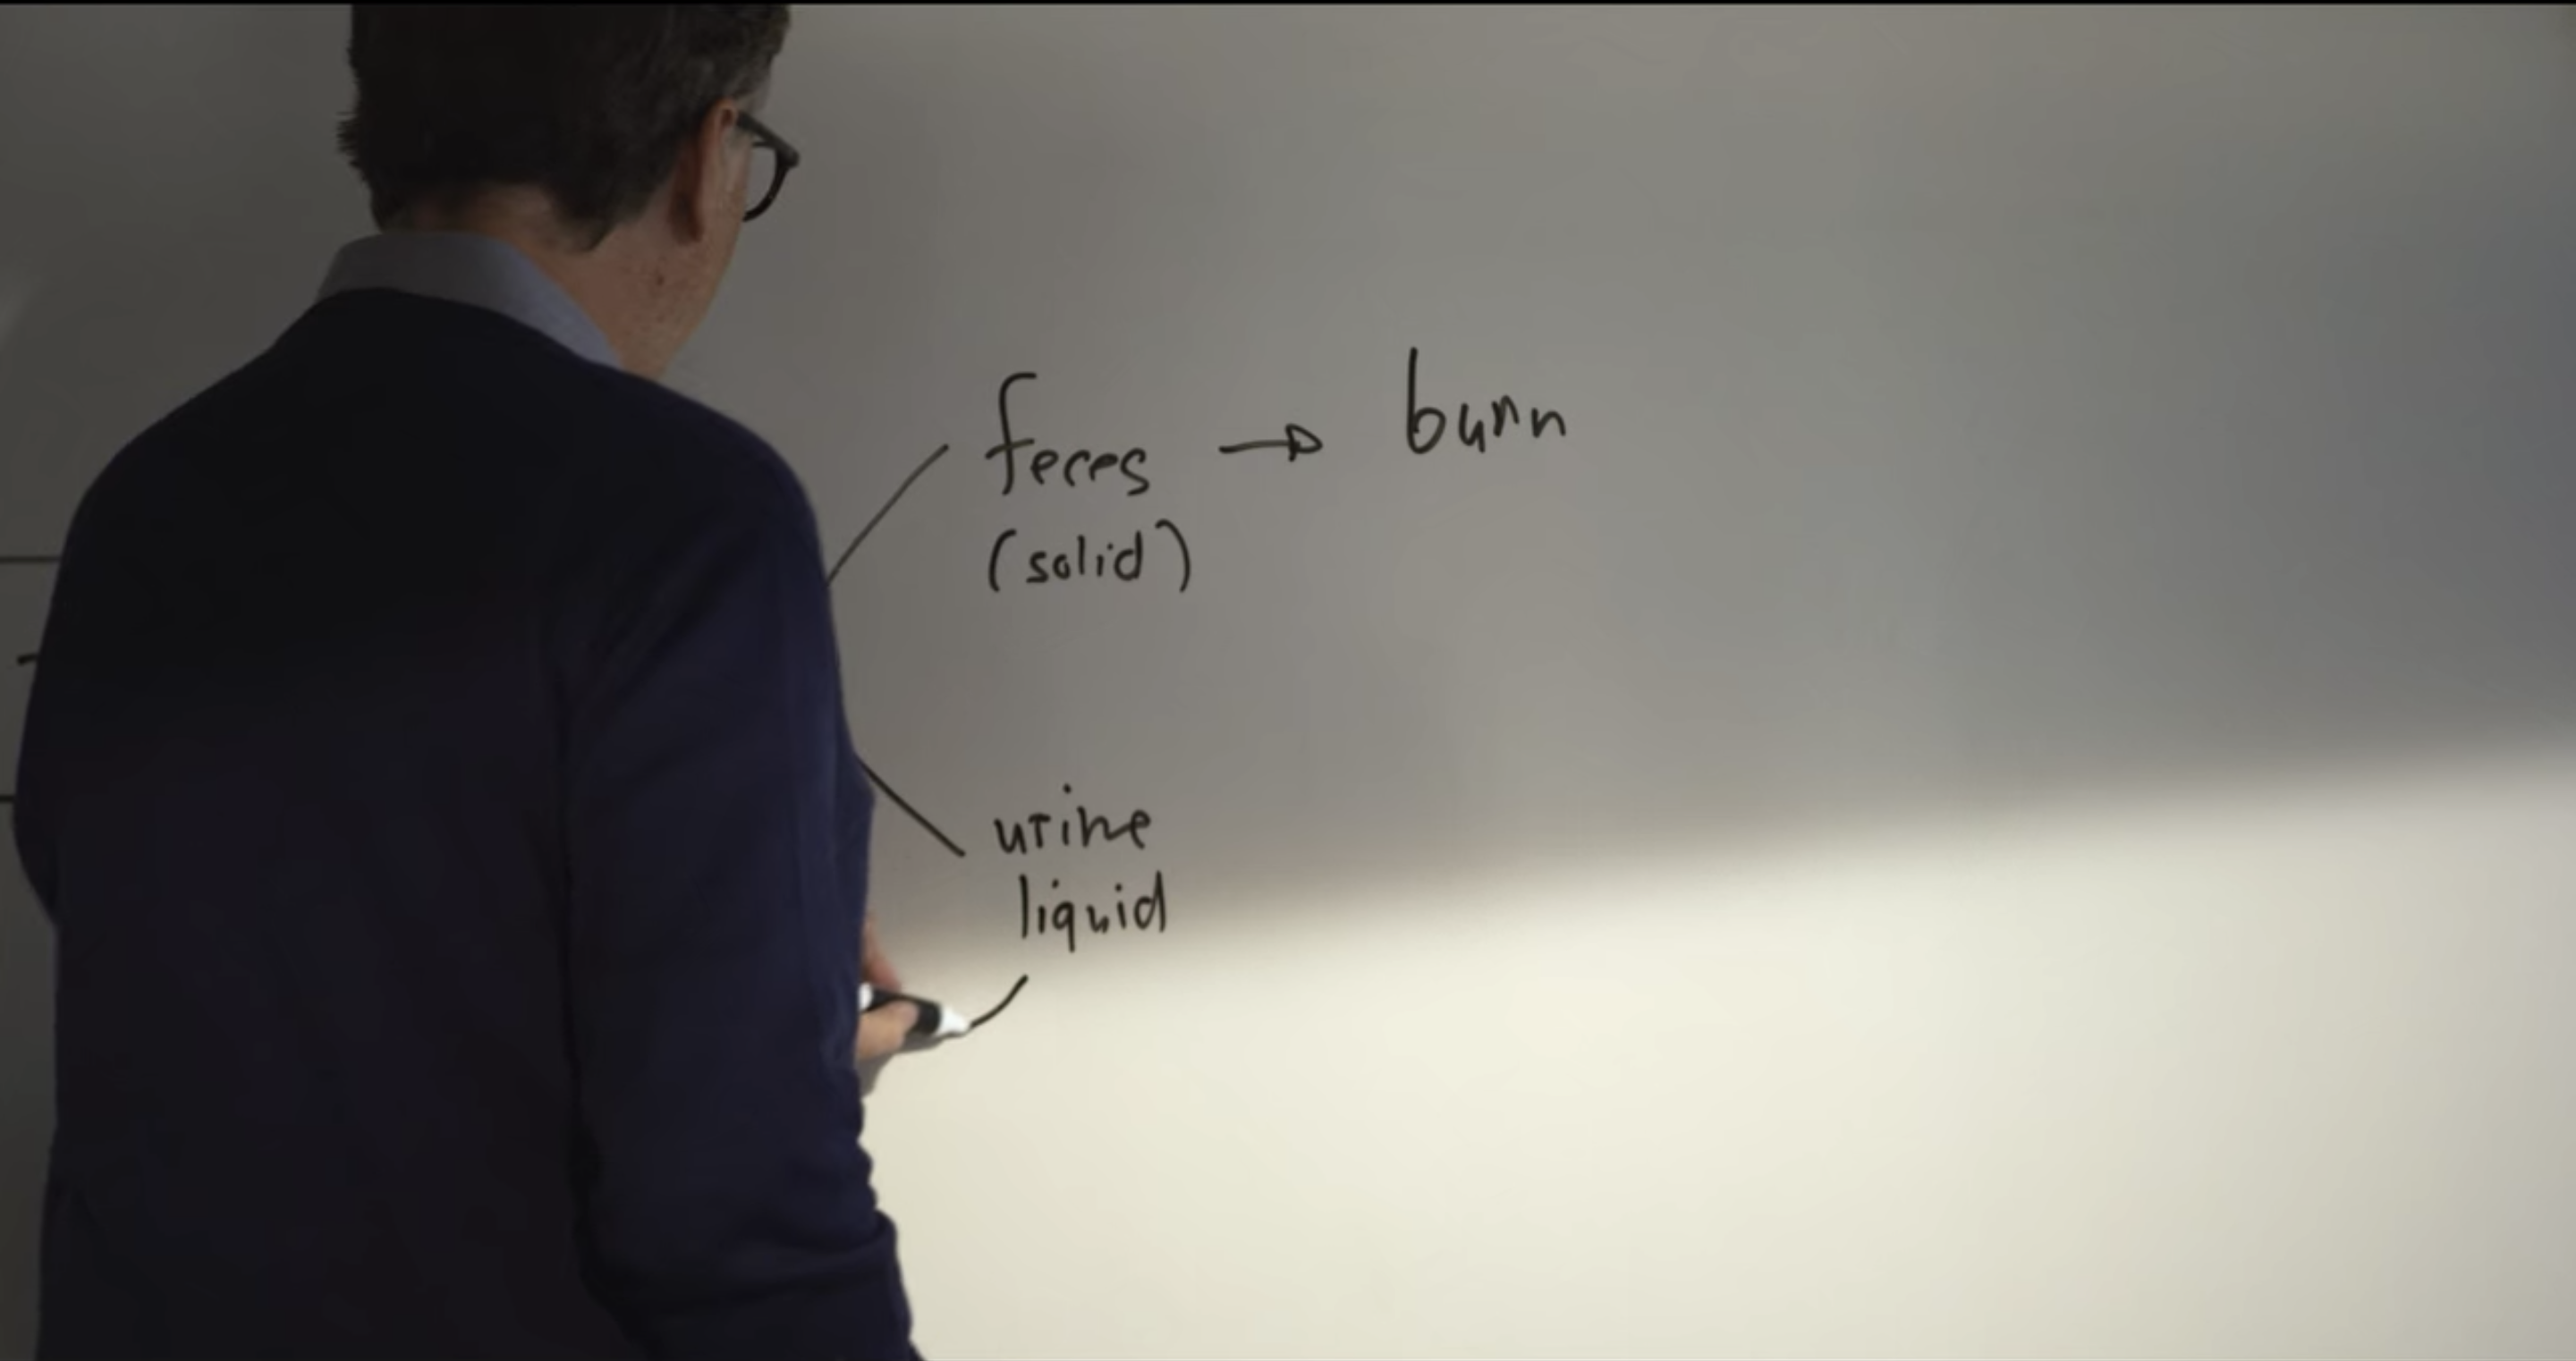 feces → burn
(solid)
urine
liquid